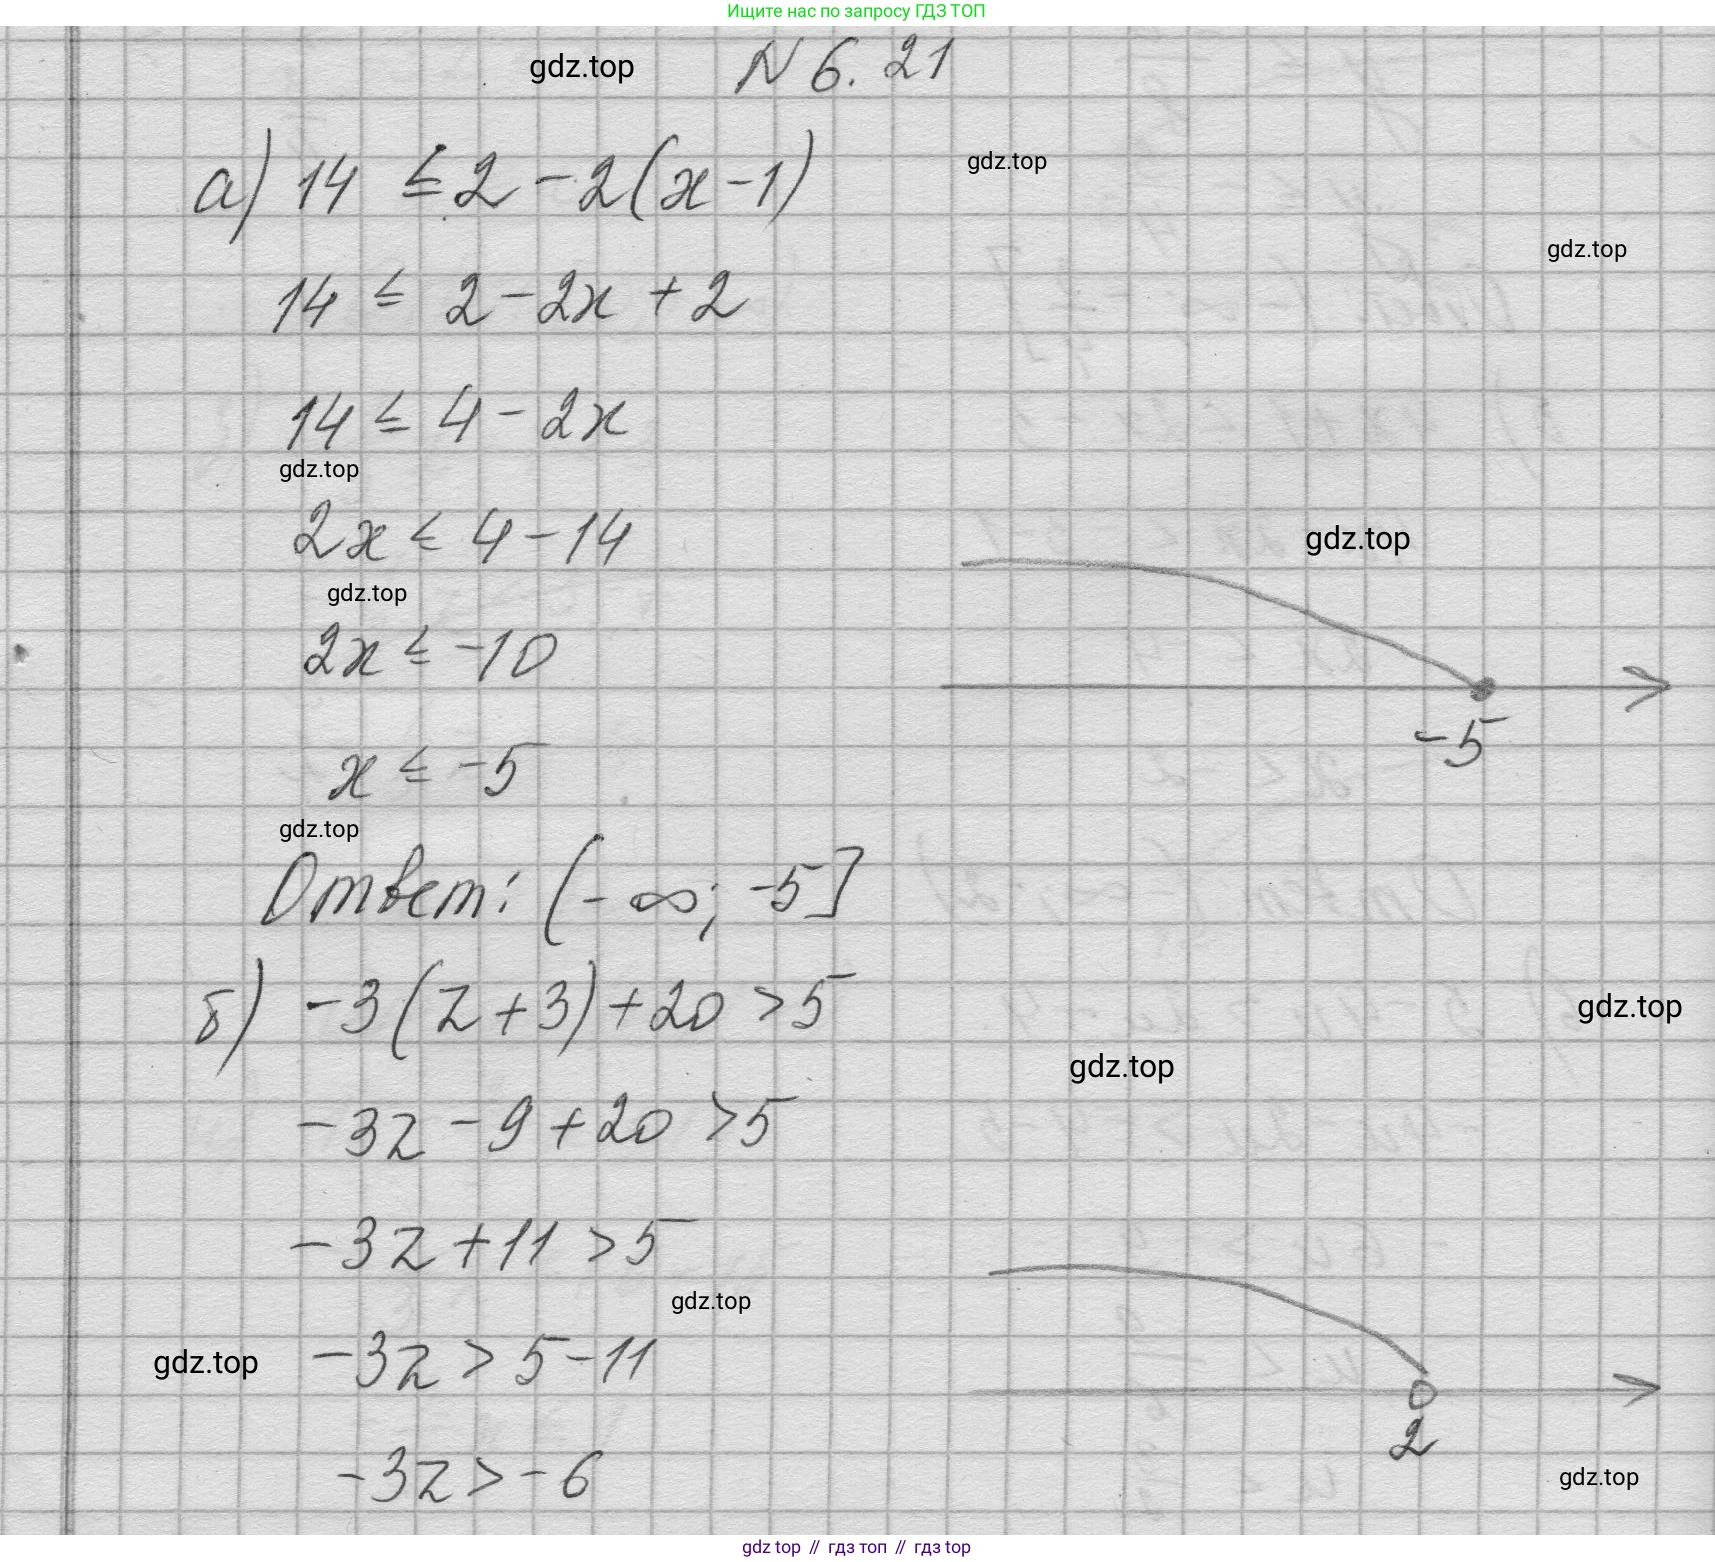 Ищите нас по запросу ГДЗ ТОП
gdz.top
N 6.21
а) 14 ≤ 2 - 2(x - 1)
gdz.top
gdz.top
14 ≤ 2 - 2x + 2
14 ≤ 4 - 2x
gdz.top
2x ≤ 4 - 14
gdz.top
gdz.top
2x ≤ -10
-5
x ≤ -5
gdz.top
Ответ: (-∞; -5]
б) -3(z + 3) + 20 > 5
gdz.top
gdz.top
-3z - 9 + 20 > 5
-3z + 11 > 5
gdz.top
gdz.top
-3z > 5 - 11
2
-3z > -6
gdz.top
gdz top // гдз топ // гдз top